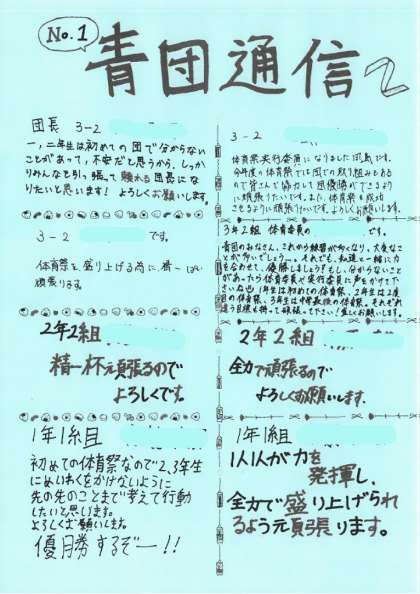 No.1
青団通信
団長 3-2
一,二年生は初めての団で分からない
ことがあって,不安だと思うから、しっか
りみんなを引っ張って頼れる団長にな
りたいと思います! よろしくお願いします。
3-2
です。
体育祭を盛り上げる為に精一ぱい
頑張ります。
2年2組
精一杯頑張るので
よろしくです。
1年1組
初めての体育祭なので2、3年生
にめいわくをかけないように
先の先のことまで考えて行動
したいと思います。
よろしくお願いします。
優勝するぞー!!
3-2
体育祭実行委員になりました
今年度の体育祭では団での取り組みもあるの
で皆さんで協力して団優勝ができるよう
に頑張りたいです。また、体育祭も成功
させるように頑張りたいです。よろしくお願いします。
3年2組 体育委員の
です。
青団のみなさん、これから練習が多くなり、大変なこ
とが多いでしょう…。それでも、私達と一緒に力
を合わせて、優勝しましょう!もし、分からないこと
があったら体育委員や実行委員に声をかけてくだ
さいね。1年生は初めての体育祭、2年生は2度
目の体育祭、3年生は中学最後の体育祭。それぞれ
違う目標を持って頑張ってください!宜しくお願いします。
2年2組
全力で頑張るので
よろしくお願いします。
1年1組
1人1人が力を
発揮し、
全力で盛り上げられ
るよう頑張ります。